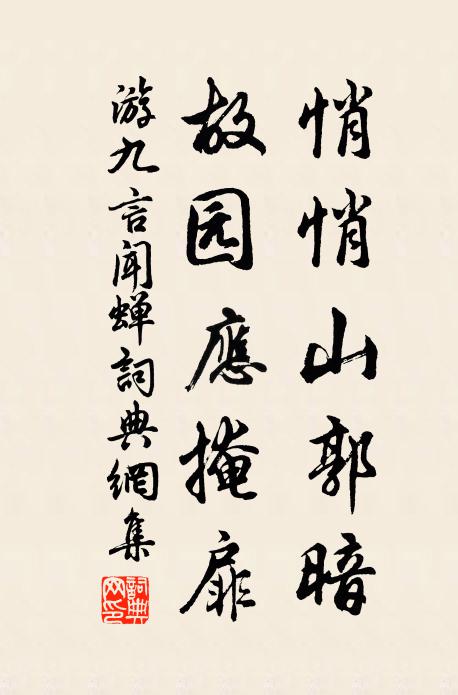 悄悄山郭暗
故园應掩扉
游九言闻蝉詞典網集
詞典网印